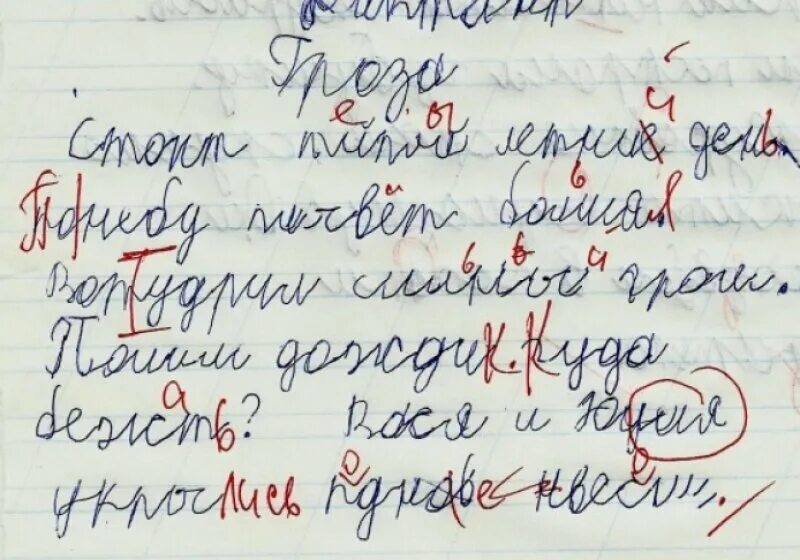 Диктант
Гроза
Стоит типлой летний день
По небу пихвёт большая
Вот ударил сильный гром.
Полил дождик. Куда
бежать? Вася и Юлия
укрылись под навесом.